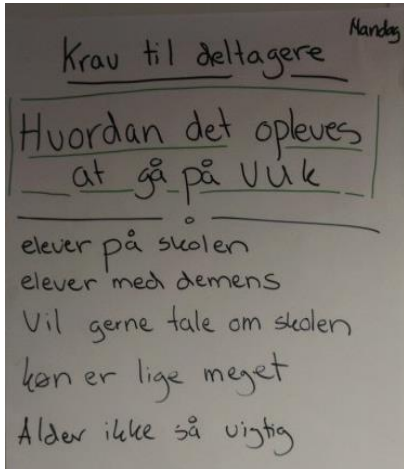 Mandag
Krav til deltagere
Hvordan det opleves
at gå på VUK
elever på skolen
elever med demens
Vil gerne tale om skolen
køn er lige meget
Alder ikke så vigtig